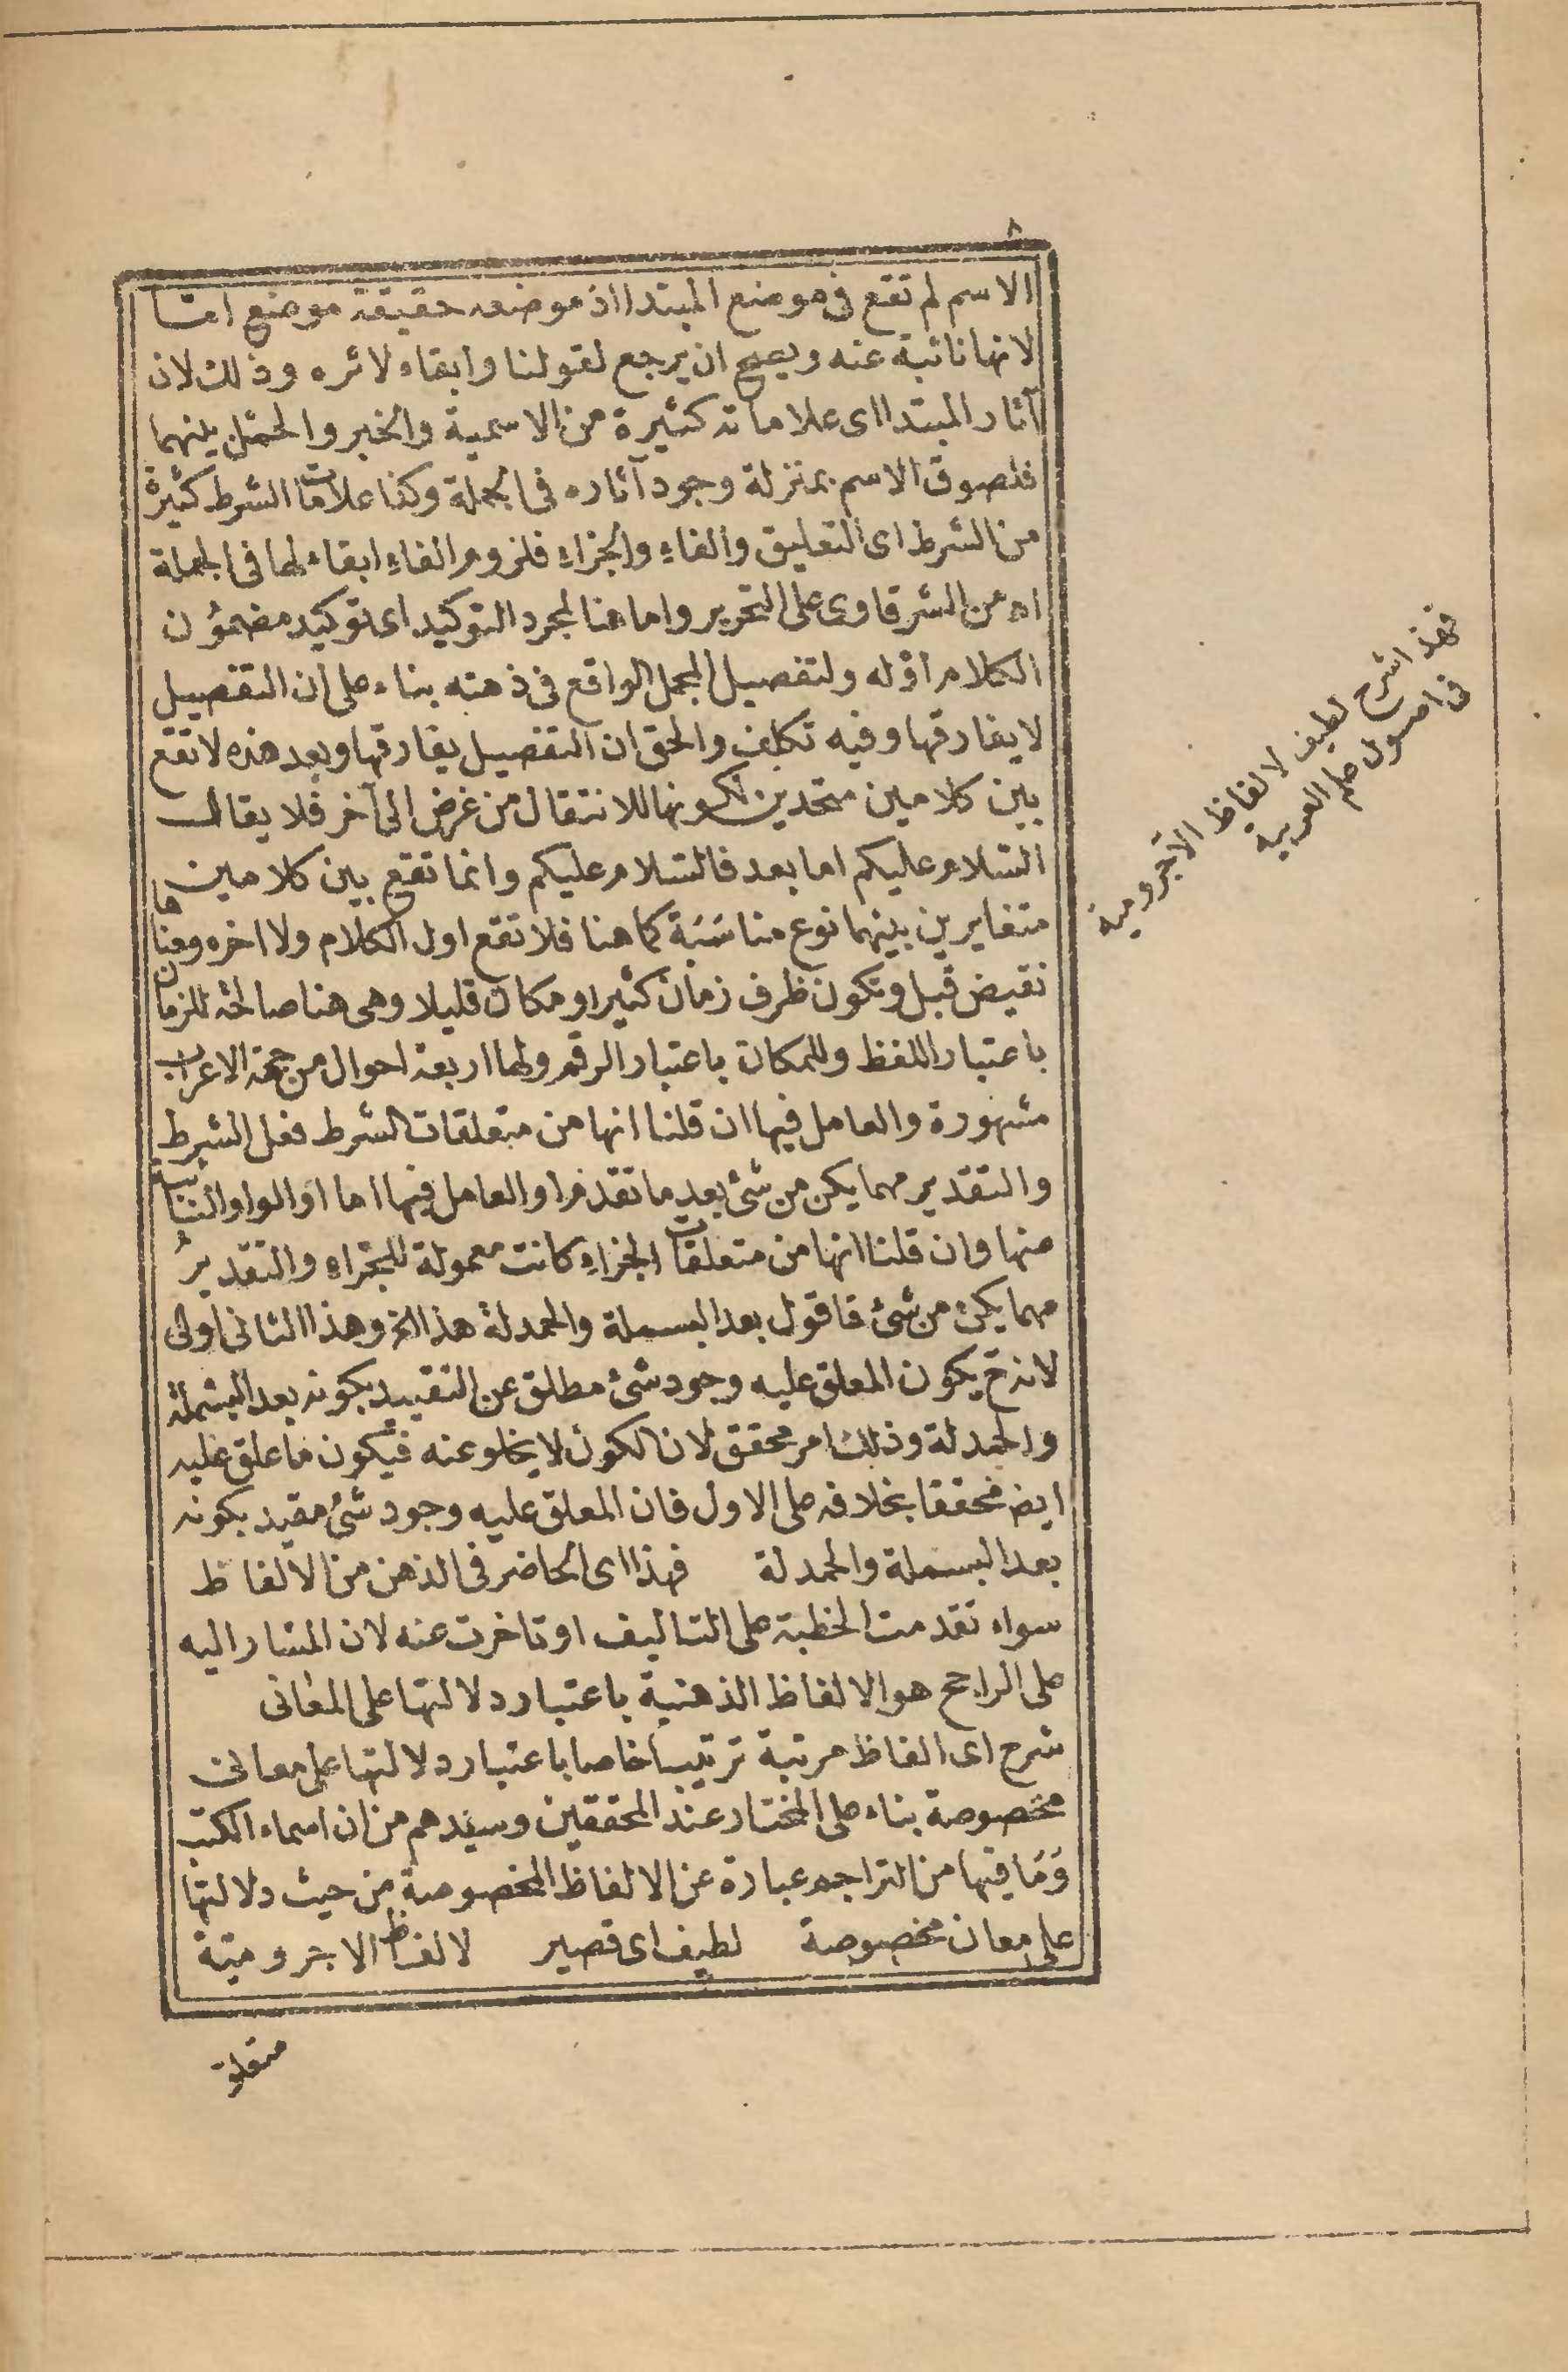 ٨
الاسم لم تقع فى موضع المبتدا اذ موضعه حقيقة موضع اما
لانها نائبة عنه ويصح ان يرجع لقولنا وابقاء لاثره وذلك لان
آثار المبتدا اى علاماته كثيرة من الاسمية والخبر والحمل بينهما
فلصوق الاسم بمنزلة وجود آثاره فى الجملة وكذا علامات الشرط كثيرة
من الشرط اى التعليق والفاء والجزاء فلزوم الفاء ابقاء لها فى الجملة
اه من الشرقاوى على التحرير واما هنا لمجرد التوكيد اى توكيد مضمون
الكلام اوّله ولتفصيل المجمل الواقع فى ذهنه بناء على ان التفصيل
لا يفارقها وفيه تكلف والحق ان التفصيل يفارقها وبعد هذه لا تقع
بين كلامين متحدين لكونها للانتقال من غرض الى آخر فلا يقال
السلام عليكم اما بعد فالسلام عليكم وانما تقع بين كلامين
متغايرين بينهما نوع مناسَبَة كما هنا فلا تقع اول الكلام ولا اخره ومعناها
نقيض قبل وتكون ظرف زمان كثيرا ومكان قليلا وهى هنا صالحة للزمان
باعتبار اللفظ وللمكان باعتبار الرقم ولها اربعة احوال من جهة الاعراب
مشهورة والعامل فيها ان قلنا انها من متعلقات الشرط فعل الشرط
والتقدير مهما يكن من شئ بعد ما تقدم او العامل فيها اما او الواو النائبة
عنها وان قلنا انها من متعلقات الجزاء كانت معمولة للجزاء والتقديرُ
مهما يكن من شئ فاقول بعد البسملة والحمدلة هذا الخ وهذا الثانى اولى
لانه ح يكون المعلق عليه وجود شئ مطلق عن التقييد بكونه بعد البسملة
والحمدلة وذلك امر محقق لان الكون لا يخلو عنه فيكون ما علق عليه
ايض محققا بخلافه على الاول فان المعلق عليه وجود شئ مقيد بكونه
بعد البسملة والحمدلة فهذا اى الحاضر فى الذهن من الالفاظ
سواء تقدمت الخطبة على التاليف او تاخرت عنه لان المشار اليه
على الراجح هو الالفاظ الذهنية باعتبار دلالتها على المعانى
شرح اى الفاظ مرتبة ترتيبا خاصا باعتبار دلالتها على معانى
مخصوصة بناء على المختار عند المحققين وسيدهم من ان اسماء الكتب
وَمَا فيها من التراجم عبارة عن الالفاظ المخصوصة من حيث دلالتها
على معان مخصوصة لطيف اى قصير لالفاظ الاجرومية
متعلق
فهذا شرح لطيف لالفاظ الاجرومية
فى اصول علم العربية